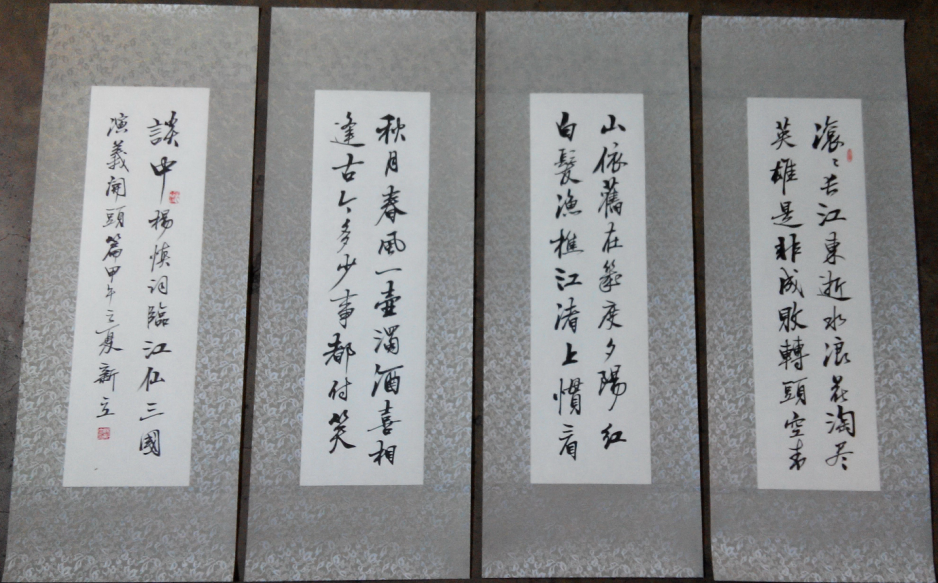 滚〻长江東逝水浪花淘尽
英雄是非成敗轉頭空青
山依舊在幾度夕陽红
白髮漁樵江渚上慣看
秋月春風一壷濁酒喜相
逢古今多少事都付笑
談中楊慎词臨江仙三國
演義開頭篇甲午立夏新立